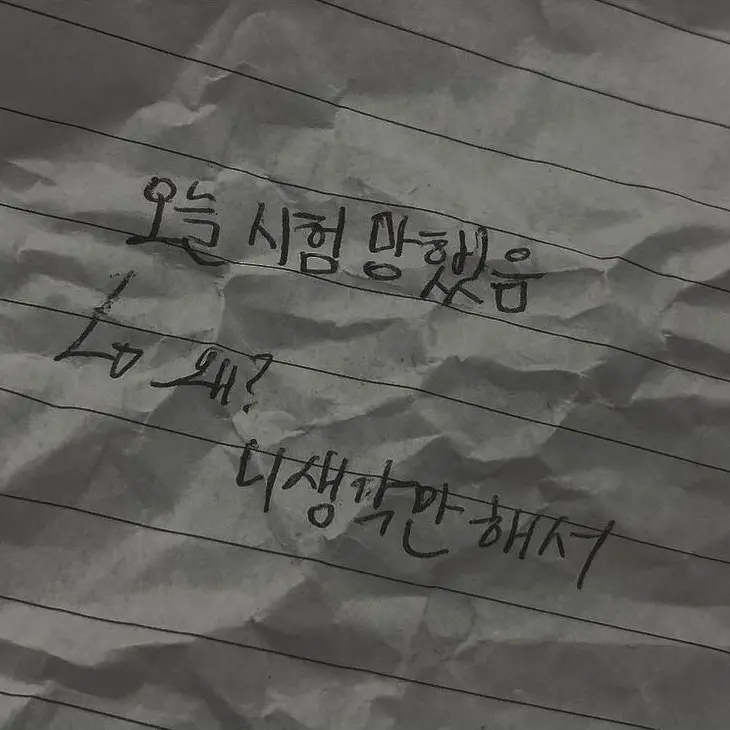 오늘 시험 망했음
↳ 왜?
니생각만 해서